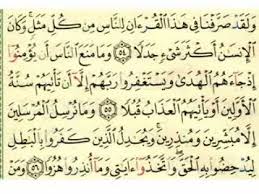 وَلَقَدْ صَرَّفْنَا فِي هَٰذَا ٱلْقُرْءَانِ لِلنَّاسِ مِن كُلِّ مَثَلٍ ۚ وَكَانَ
ٱلْإِنسَٰنُ أَكْثَرَ شَىْءٍ جَدَلًا ۝٥٤ وَمَا مَنَعَ ٱلنَّاسَ أَن يُؤْمِنُوٓا۟
إِذْ جَآءَهُمُ ٱلْهُدَىٰ وَيَسْتَغْفِرُوا۟ رَبَّهُمْ إِلَّآ أَن تَأْتِيَهُمْ سُنَّةُ
ٱلْأَوَّلِينَ أَوْ يَأْتِيَهُمُ ٱلْعَذَابُ قُبُلًا ۝٥٥ وَمَا نُرْسِلُ ٱلْمُرْسَلِينَ
إِلَّا مُبَشِّرِينَ وَمُنذِرِينَ ۚ وَيُجَٰدِلُ ٱلَّذِينَ كَفَرُوا۟ بِٱلْبَٰطِلِ
لِيُدْحِضُوا۟ بِهِ ٱلْحَقَّ ۖ وَٱتَّخَذُوٓا۟ ءَايَٰتِى وَمَآ أُنذِرُوا۟ هُزُوًا ۝٥٦ وَمَنْ